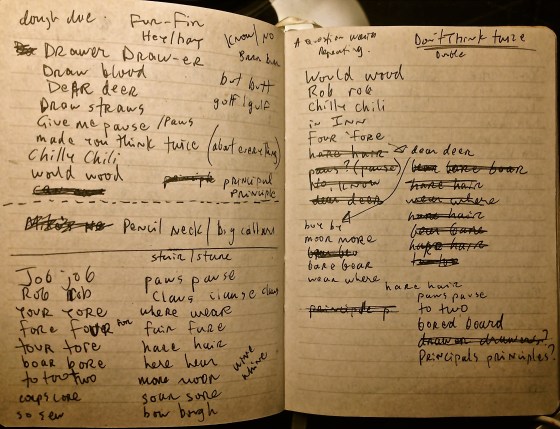 dough doe
Fur-Fir
Hey/hay
know/no
DRAWER DRAW-ER
Barn
Draw blood
DeAR deer
but butt
Draw straws
golf/gulf
Give me pause/paws
made you think twice (about everything)
Chilly Chili
would wood
PRINCIPAL
PRINCIPLE
Pencil neck/big collars
stair/stare
Job job
paws pause
Rob rob
Claws clause
YOUR YORE
where wear
FORE FOUR FOR
fair fare
TOUR TORE
hare hair
boar bore
here hear
to too two
more moor
whine
corps core
soar sore
so sew
bow bough
A question worth
Repeating.
Don't Think twice
Double
Would wood
Rob rob
Chilly chili
in INN
FOUR fore
hare hair
dear deer
paws? (pause)
bear bare boar
No know
hare hair
dear deer
wear where
hare hair
buy by
moor more
hare hair
bare boar
wear where
hare hair
paws pause
to two
bored board
drawer drawers?
Principals principles?